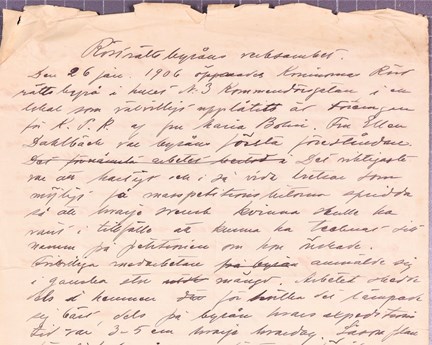 Rösträttsbyråns verksamhet.
Den 26 jan. 1906 öppnades Kvinnornas Röst
rätts byrå i huset N. 3 Kommendörsgatan i en
lokal som välvilligt uppläts av Föreningen
för K. P. R. af fru Maria Bolin. Frk Ellen
Dahlbäck var byråns första föreståndare.
Det förnämsta arbetet bestod i Det viktigaste
var att hastigt och i så vida kretsar som
möjligt få masspetitionslistorna spridda
så att hvarje svensk kvinna skulle ha
varit i tillfälle att kunna ha tecknat sitt
namn på petitionen om hon önskade.
Frivilliga medarbetare på byrån anmälde sig
i ganska stor mängd. Arbetet skedde
dels i hemmen för hvilka det lämpade
sig bäst, dels på byrån hvars expeditions
tid var 3-5 em hvarje hvardag.